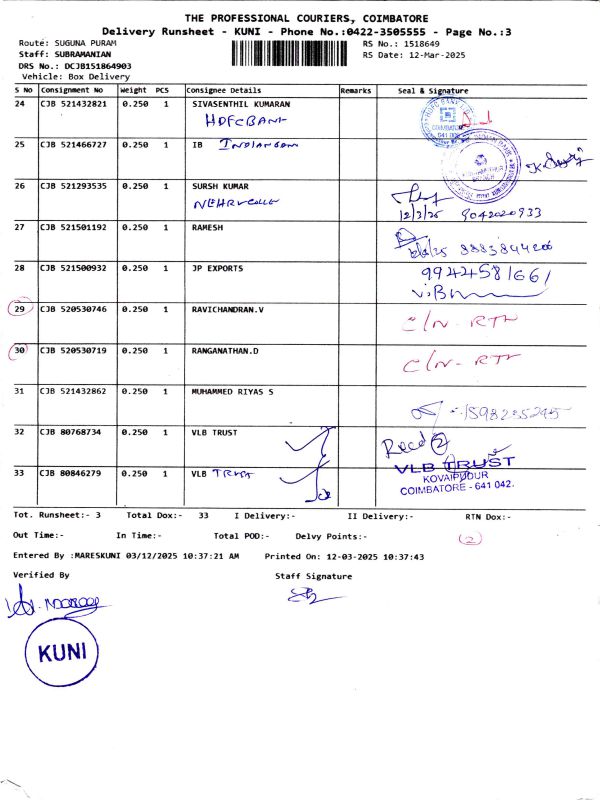 THE PROFESSIONAL COURIERS, COIMBATORE
Delivery Runsheet - KUNI - Phone No.:0422-3505555 - Page No.:3
Route: SUGUNA PURAM
RS No.: 1518649
Staff: SUBRAMANIAN
RS Date: 12-Mar-2025
DRS No.: DCJB151864903
Vehicle: Box Delivery
S No Consignment No Weight PCS Consignee Details Remarks Seal & Signature
24 CJB 521432821 0.250 1 SIVASENTHIL KUMARAN
HDFC BANK
HDFC BANK
COIMBATORE
641 008
25 CJB 521466727 0.250 1 IB INDIAN
26 CJB 521293535 0.250 1 SURSH KUMAR
12/3/25 9042020933
27 CJB 521501192 0.250 1 RAMESH
28 CJB 521500932 0.250 1 JP EXPORTS
9942458166
29 CJB 520530746 0.250 1 RAVICHANDRAN.V
C/N - RTN
30 CJB 520530719 0.250 1 RANGANATHAN.D
C/N - RTN
31 CJB 521432862 0.250 1 MUHAMMED RIYAS S
32 CJB 80768734 0.250 1 VLB TRUST
Recd 2
33 CJB 80846279 0.250 1 VLB TRUST
VLB TRUST
KOVAIPUDUR
COIMBATORE - 641 042.
Tot. Runsheet:- 3 Total Dox:- 33 I Delivery:- II Delivery:- RTN Dox:-
Out Time:- In Time:- Total POD:- Delvy Points:- 2
Entered By :MARESKUNI 03/12/2025 10:37:21 AM Printed On: 12-03-2025 10:37:43
Verified By Staff Signature
KUNI